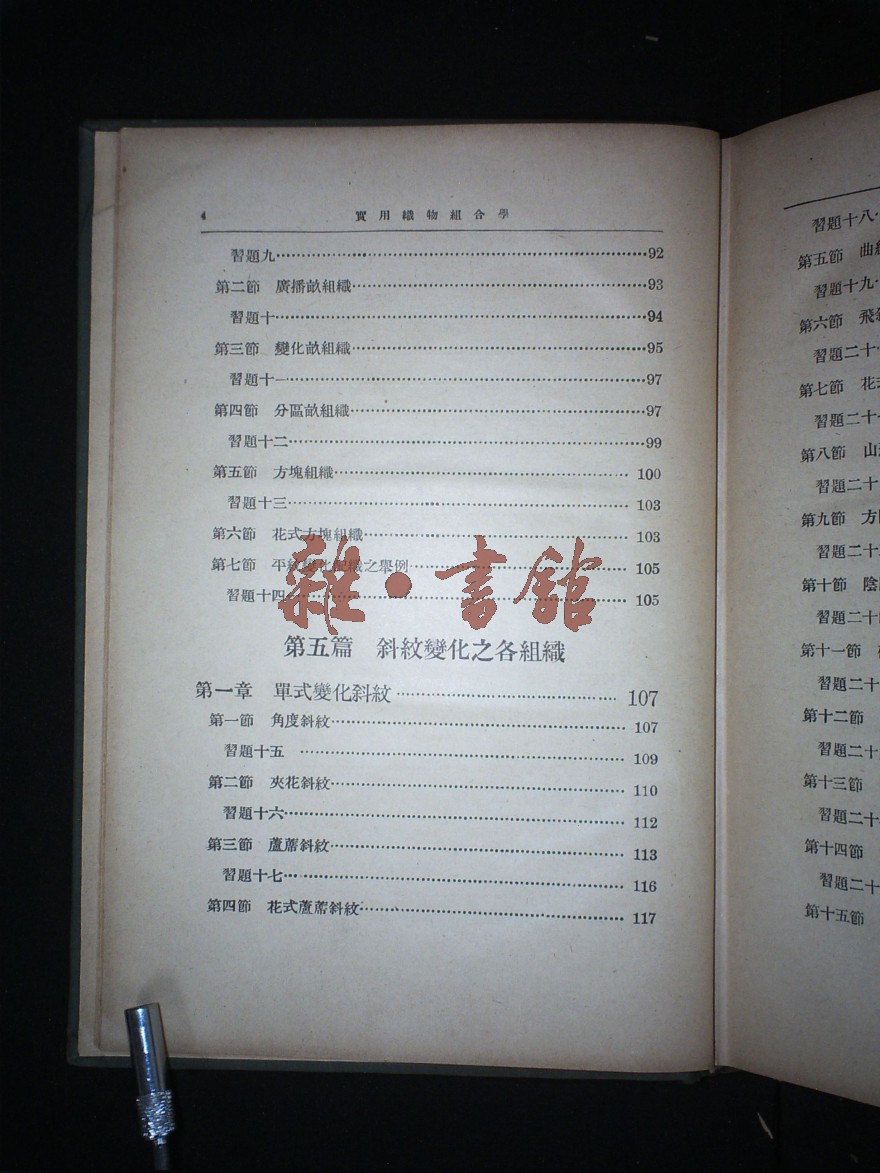 4 實用織物組合學
習題九……92
第二節 廣播畝組織……93
習題十……94
第三節 變化畝組織……95
習題十一……97
第四節 分區畝組織……97
習題十二……99
第五節 方塊組織……100
習題十三……103
第六節 花式方塊組織……103
第七節 平紋變化配織之舉例……105
習題十四……105
雜·書館
第五篇 斜紋變化之各組織
第一章 單式變化斜紋……107
第一節 角度斜紋……107
習題十五……109
第二節 夾花斜紋……110
習題十六……112
第三節 蘆蓆斜紋……113
習題十七……116
第四節 花式蘆蓆斜紋……117
習題十八
第五節
習題十九
第六節
習題二十
第七節
習題二十
第八節
習題二十
第九節
習題二十
第十節
習題二十
第十一節
習題二十
第十二節
習題二十
第十三節
習題二十
第十四節
習題二十
第十五節